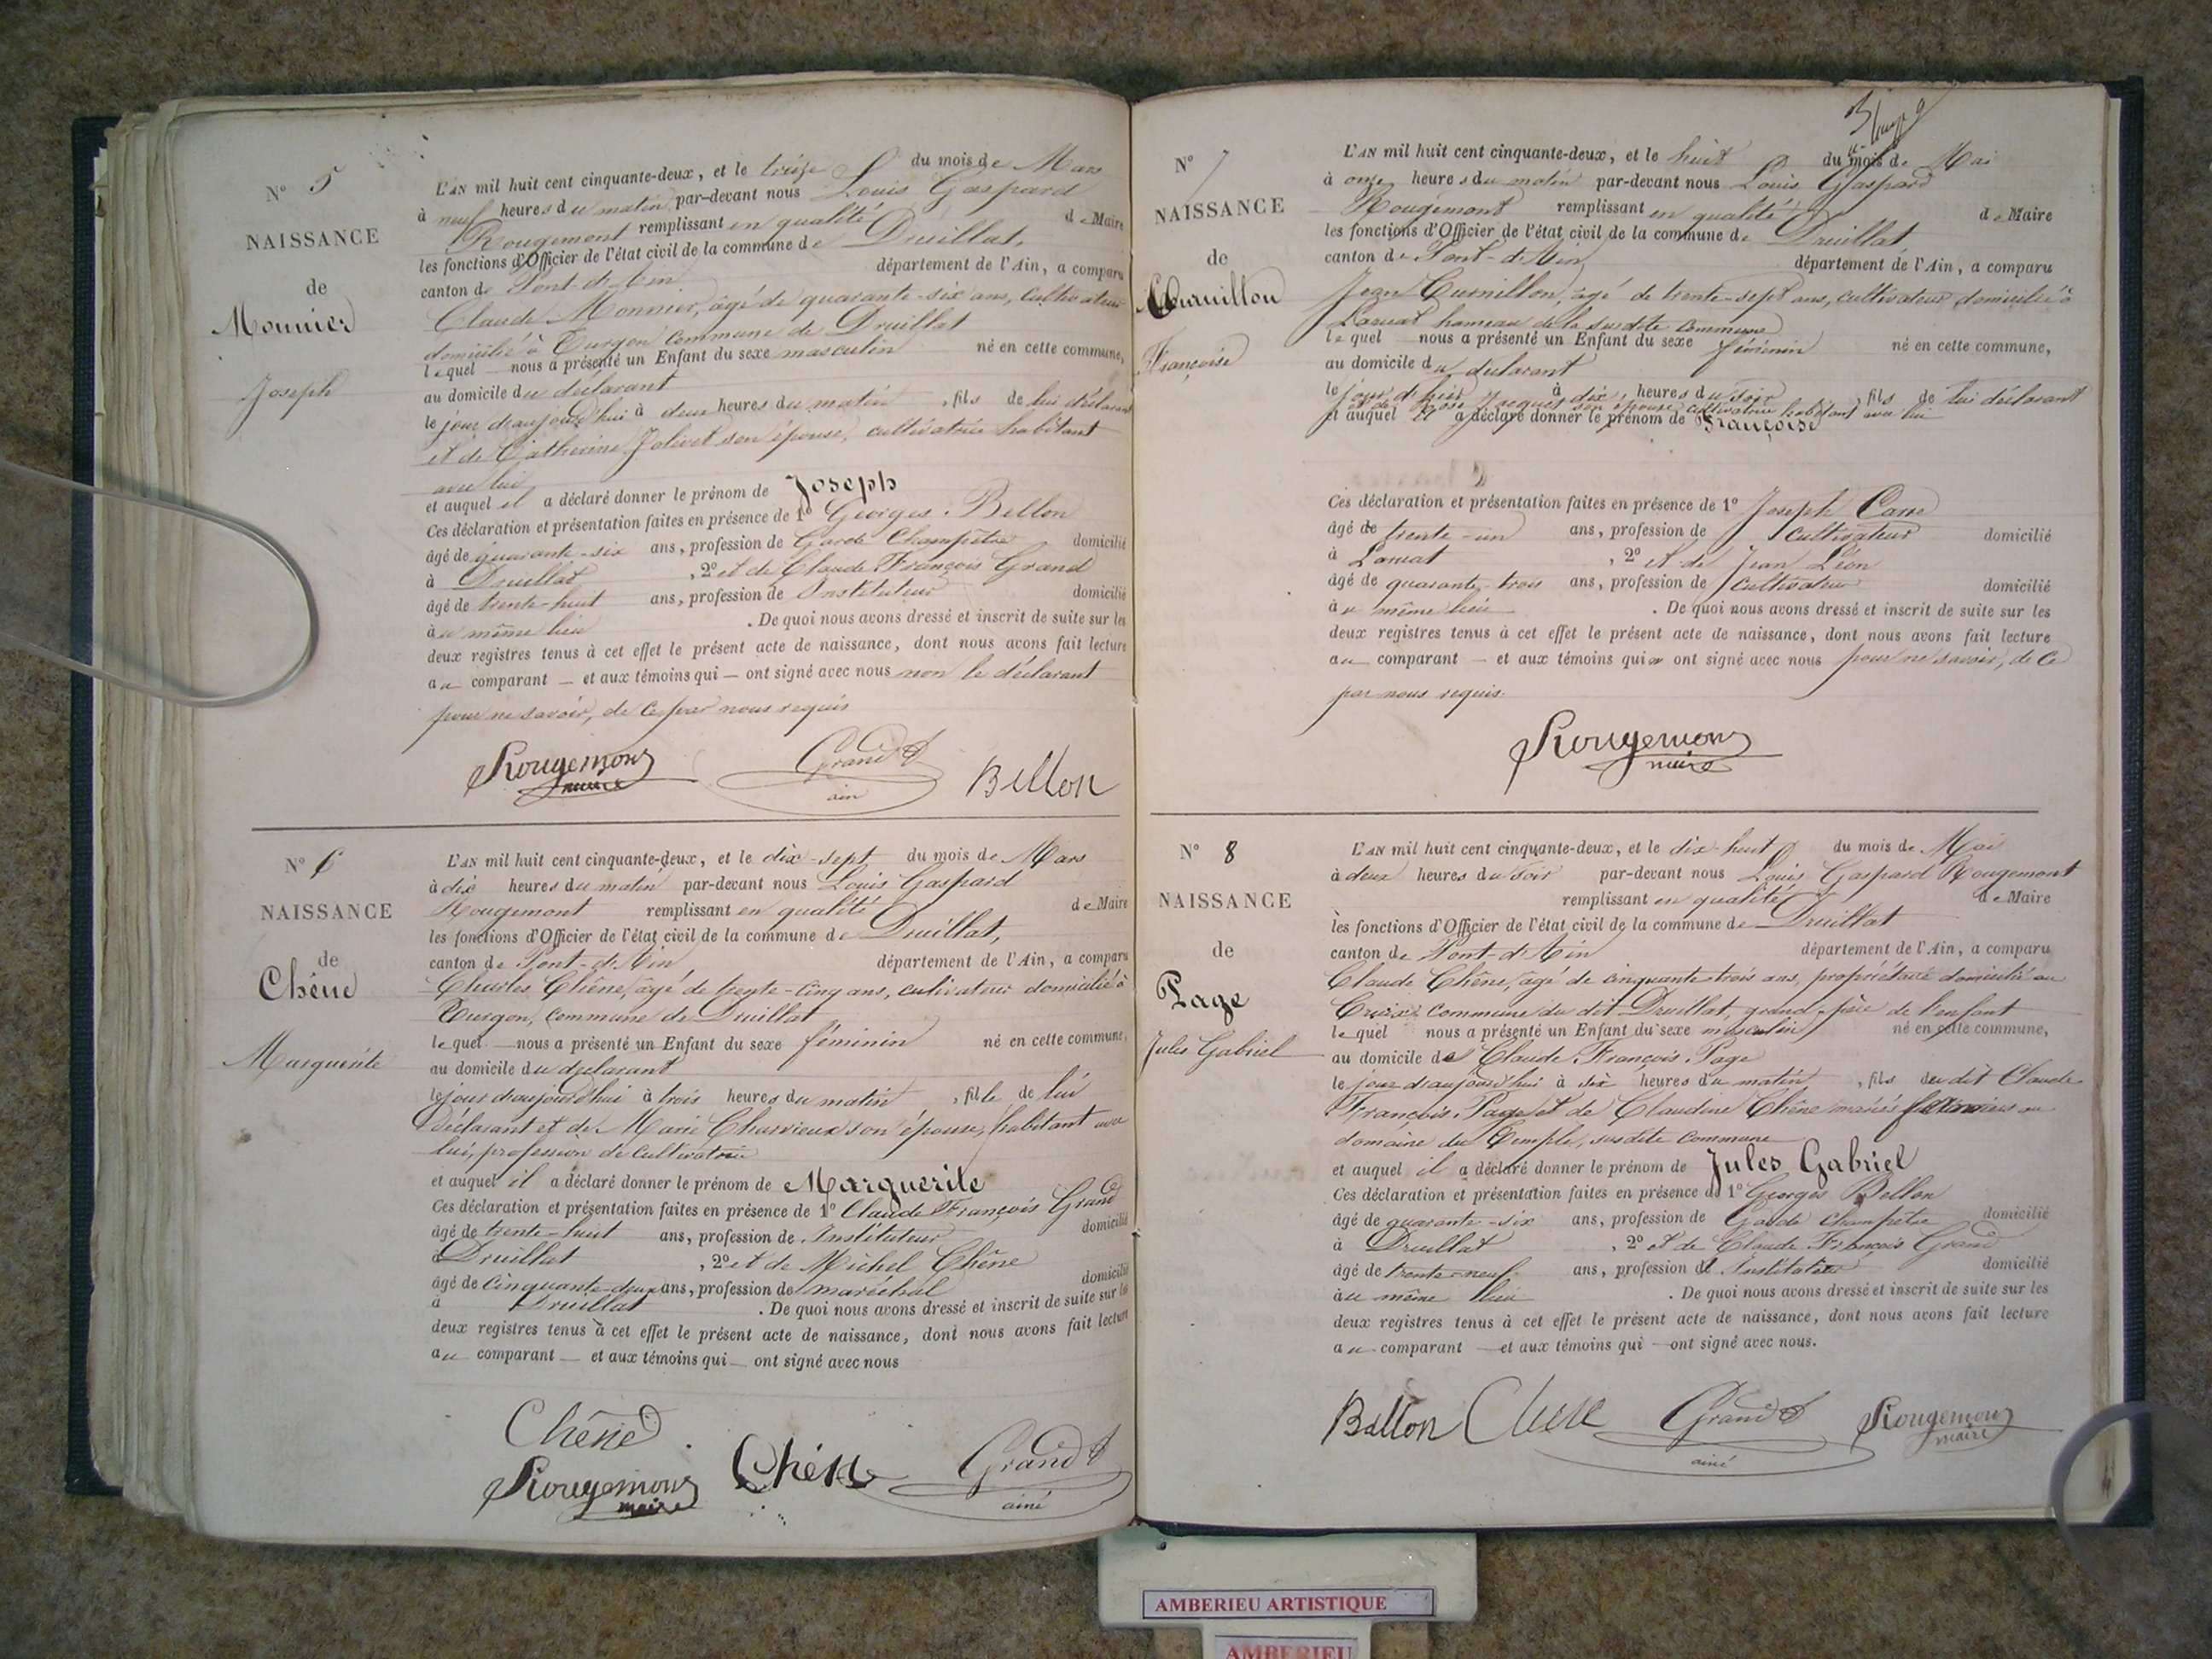 N° 5
NAISSANCE
de
Monnier
Joseph
L'AN mil huit cent cinquante-deux, et le treize du mois de Mars
à neuf heures du matin par-devant nous Louis Gaspard
Rougemont remplissant en qualité de Maire
les fonctions d'Officier de l'état civil de la commune de Druillat,
canton de Pont-d'Ain département de l'Ain, a comparu
Claude Monnier, âgé de quarante-six ans, cultivateur
domicilié à Turgon commune de Druillat
lequel nous a présenté un Enfant du sexe masculin né en cette commune,
au domicile du déclarant
le jour d'aujourd'hui à deux heures du matin, fils de lui déclarant
et de Catherine Jolivet son épouse, cultivatrice habitant
avec lui
et auquel il a déclaré donner le prénom de Joseph
Ces déclaration et présentation faites en présence de 1° Georges Bellon
âgé de quarante-six ans, profession de Garde Champêtre domicilié
à Druillat, 2° et de Claude François Grand
âgé de trente-huit ans, profession de Instituteur domicilié
au même lieu. De quoi nous avons dressé et inscrit de suite sur les
deux registres tenus à cet effet le présent acte de naissance, dont nous avons fait lecture
au comparant — et aux témoins qui — ont signé avec nous non le déclarant
pour ne savoir, de ce par nous requis
Rougemont maire
Grand ainé
Bellon
N° 6
NAISSANCE
de
Chêne
Marguerite
L'AN mil huit cent cinquante-deux, et le dix-sept du mois de Mars
à dix heures du matin par-devant nous Louis Gaspard
Rougemont remplissant en qualité de Maire
les fonctions d'Officier de l'état civil de la commune de Druillat,
canton de Pont-d'Ain département de l'Ain, a comparu
Charles Chêne, âgé de trente-cinq ans, cultivateur domicilié à
Turgon, commune de Druillat
lequel — nous a présenté un Enfant du sexe féminin né en cette commune,
au domicile du déclarant
le jour d'aujourd'hui à trois heures du matin, fille de lui
déclarant et de Marie Charvieux son épouse, habitant avec
lui, profession de cultivatrice
et auquel il a déclaré donner le prénom de Marguerite
Ces déclaration et présentation faites en présence de 1° Claude François Grand
âgé de trente-huit ans, profession de Instituteur domicilié
à Druillat, 2° et de Michel Chêne
âgé de cinquante-deux ans, profession de maréchal domicilié
à Druillat. De quoi nous avons dressé et inscrit de suite sur les
deux registres tenus à cet effet le présent acte de naissance, dont nous avons fait lecture
au comparant — et aux témoins qui — ont signé avec nous
Chêne
Rougemont maire
Chêne
Grand ainé
N° 7
NAISSANCE
de
Curnillon
Françoise
L'AN mil huit cent cinquante-deux, et le huit du mois de Mai
à onze heures du matin par-devant nous Louis Gaspard
Rougemont remplissant en qualité de Maire
les fonctions d'Officier de l'état civil de la commune de Druillat
canton de Pont-d'Ain département de l'Ain, a comparu
Jean Curnillon, âgé de trente-sept ans, cultivateur, domicilié à
hameau de la susdite commune
lequel nous a présenté un Enfant du sexe féminin né en cette commune,
au domicile du déclarant
le jour d'hier à dix heures du soir, fils de lui déclarant
et de son épouse cultivatrice habitant avec lui
et auquel il a déclaré donner le prénom de Françoise
Ces déclaration et présentation faites en présence de 1° Joseph
âgé de trente-un ans, profession de cultivateur domicilié
à, 2° et de Jean Léon
âgé de quarante-trois ans, profession de cultivateur domicilié
au même lieu. De quoi nous avons dressé et inscrit de suite sur les
deux registres tenus à cet effet le présent acte de naissance, dont nous avons fait lecture
au comparant — et aux témoins qui ont signé avec nous pour ne savoir, de ce
par nous requis.
Rougemont maire
N° 8
NAISSANCE
de
Page
Jules Gabriel
L'AN mil huit cent cinquante-deux, et le dix-huit du mois de Mai
à deux heures du soir par-devant nous Louis Gaspard Rougemont
remplissant en qualité de Maire
les fonctions d'Officier de l'état civil de la commune de Druillat
canton de Pont-d'Ain département de l'Ain, a comparu
Claude Chêne, âgé de cinquante trois ans, propriétaire domicilié au
commune du dit Druillat, grand-père de l'enfant
lequel nous a présenté un Enfant du sexe masculin né en cette commune,
au domicile de Claude François Page
le jour d'aujourd'hui à six heures du matin, fils du dit Claude
François Page et de Claudine Chêne mariés fermiers au
domaine du Temple, susdite commune
et auquel il a déclaré donner le prénom de Jules Gabriel
Ces déclaration et présentation faites en présence de 1° Georges Bellon
âgé de quarante-six ans, profession de Garde champêtre domicilié
à Druillat, 2° et de Claude François Grand
âgé de trente-neuf ans, profession de Instituteur domicilié
au même lieu. De quoi nous avons dressé et inscrit de suite sur les
deux registres tenus à cet effet le présent acte de naissance, dont nous avons fait lecture
au comparant — et aux témoins qui — ont signé avec nous.
Bellon Chêne Grand ainé Rougemont maire
AMBERIEU ARTISTIQUE
AMBERIEU